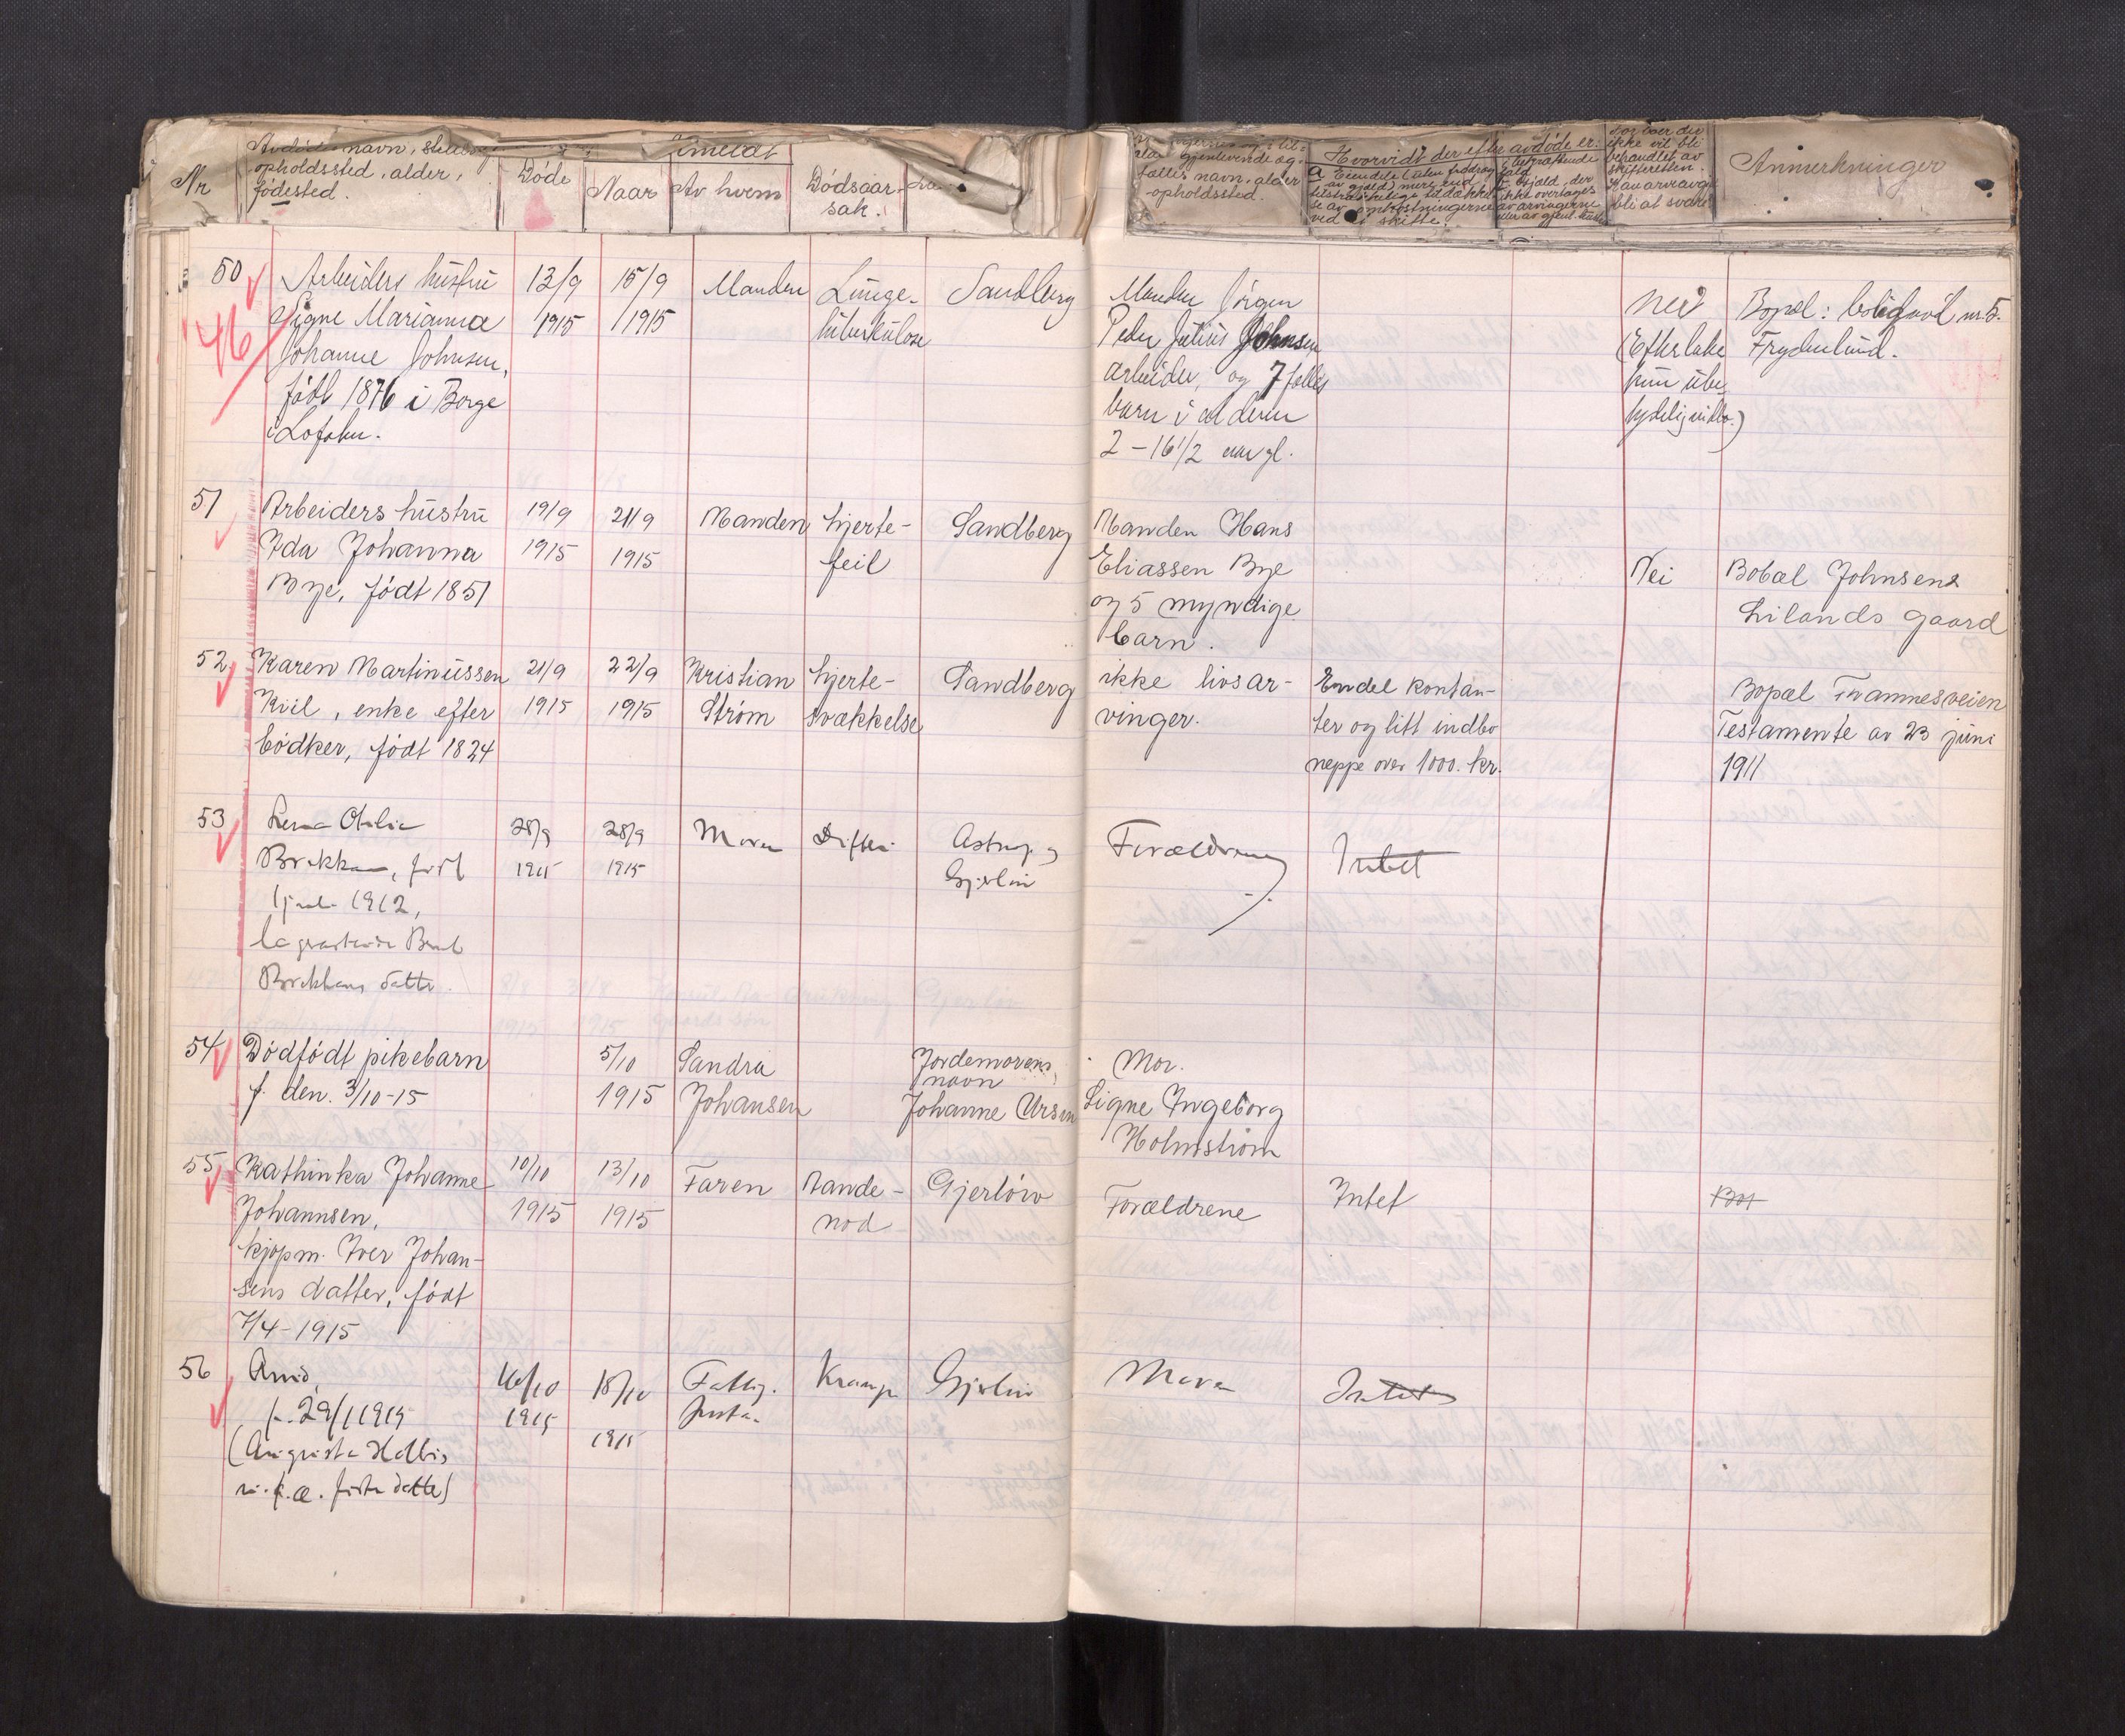 Nr
Avdødes navn, stilling
opholdssted, alder,
fødested.
Døde
Anmeldt
Naar
Av hvem
Dödsaar-
sak.
gjenlevende æg-
tefælles navn, alder
opholdssted.
Hvorvidt der efter avdøde er.
Anmerkninger
50
Arbeiders hustru
Signe Marianna
Johanne Johnsen,
født 1876 i Borge
i Lofoten.
46
13/9
1915
15/9
1915
Manden
Lunge-
tuberkulose
Sandberg
Manden Jørgen
Peder Julius Johnsen
arbeider, og 7 fælles
barn i alderen
2 - 16 1/2 aar gl.
nei
(Efterlate
kun ube
tydelig indbo.)
Bopæl: nr. 5.
Frydenlund.
51
Arbeiders hustru
Ida Johanna
Bye, født 1851
19/9
1915
21/9
1915
Manden
hjerte-
feil
Sandberg
Manden Hans
Eliassen Bye
og 5 myndige
barn.
Nei
Bobæl Johnsens
Lilands gaard
52
Karen Martinussen
Kiil, enke efter
bödker, født 1824
21/9
1915
22/9
1915
Kristian
Strøm
hjerte-
svækkelse
Sandberg
ikke livsar-
vinger.
Endel kontan-
ter og litt indbo
neppe over 1000. kr.
Bopæl Framnesveien
Testamente av 23 juni
1911
53
Otilie
Brekkan, født
1912,
Brekkans datter.
28/9
1915
28/9
1915
Moren
Difteri
Astrup og
Gjerløw
Forældrene
Intet
54
Dödfödt pikebarn
f. den. 3/10-15
5/10
1915
Sandra
Johansen
Jordemorens
navn
Johanne Ursin
Mor.
Signe Ingeborg
Holmström
55
Kathinka Johanne
Johannsen,
kjøpm. Iver Johan-
sens datter, født
7/4-1915
10/10
1915
13/10
1915
Faren
Aande-
nød
Gjerlöw
Forældrene
Intet
56
Arvid,
f. 29/1 1915
(Augusta
datter)
16/10
1915
18/10
1915
Fattig-
Krampe
Gjerløw
Moren
Intet